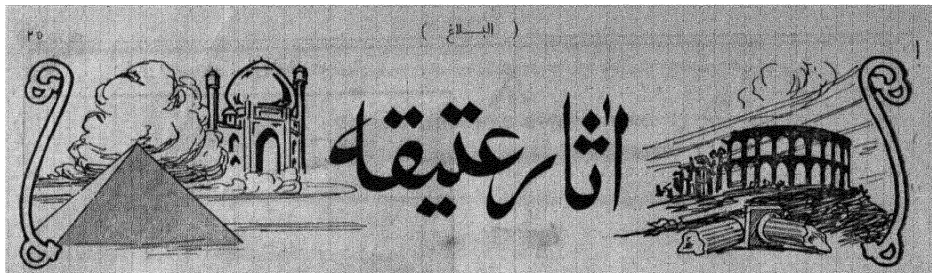 ( البلاغ )
٢٥
اثار عتيقه